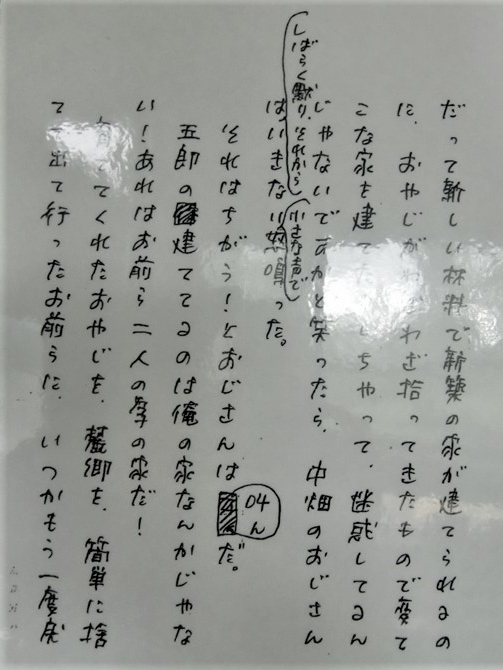 だって新しい材料で新築の家が建てられるの
に、おやじがわざわざ拾ってきたもので変て
こな家を建て ちやって、迷惑してるん
じゃないですかと笑ったら、中畑のおじさん
しばらく黙り、それから
小さな声で
はいきなり怒鳴った。
それはちがう!とおじさんは叫んだ。
五郎の建ててるのは俺の家なんかじゃな
い!あれはお前ら二人の為の家だ!
ててくれたおやじを、麓郷を、簡単に捨
てて出て行ったお前らに、いつかもう一度戻